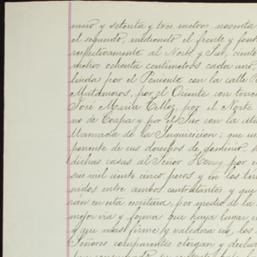 mero y setenta y tres metros noventa
el segundo, midiendo el frente y fond
respectivamente al Norte y Sur, veinte
ocho ochenta centímetros cada uno,
linda por el Poniente con la calle
Matamoros, por el Oriente con terre
José María Tellez, por el Norte
no de Coapa y por el Sur con la
llamada de la Inquisicion; que
ponente de sus derechos de dominio
dichas casas al Señor Henry por
mil veinte cinco pesos y en los tér
nidos entre ambos contratantes y que
san en esta escritura, por medio de la
mejor via y forma que haya lugar en
y que mas firme y valedera sea, los
Señores comparentes otorgan y declar